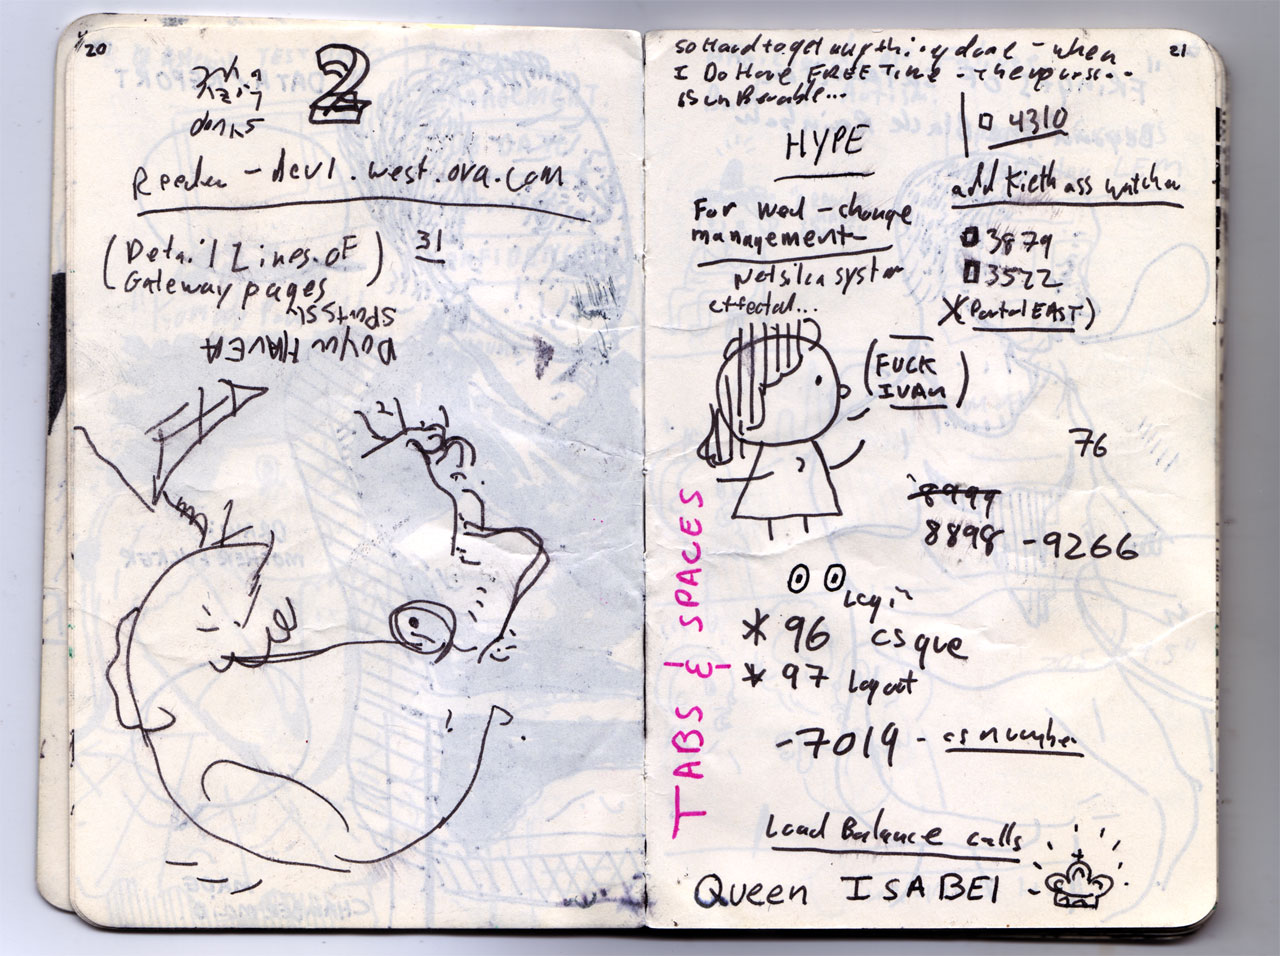 20
2
dev1.west.ova.com
(Detail Lines of)
Gateway pages
31
21
So Hard to get anything done - when
I Do Have FREE Time - The
is unBearable...
HYPE
4310
add Kieth ass watcher
For Wed - change
management
3879
3522
(Portal EAST)
system
effected...
(FUCK
IVAN)
76
8999
8898 - 9266
TABS & SPACES
Login
* 96 cs que
* 97 Logout
- 7019 - cs number
Load Balance calls
Queen ISABEl